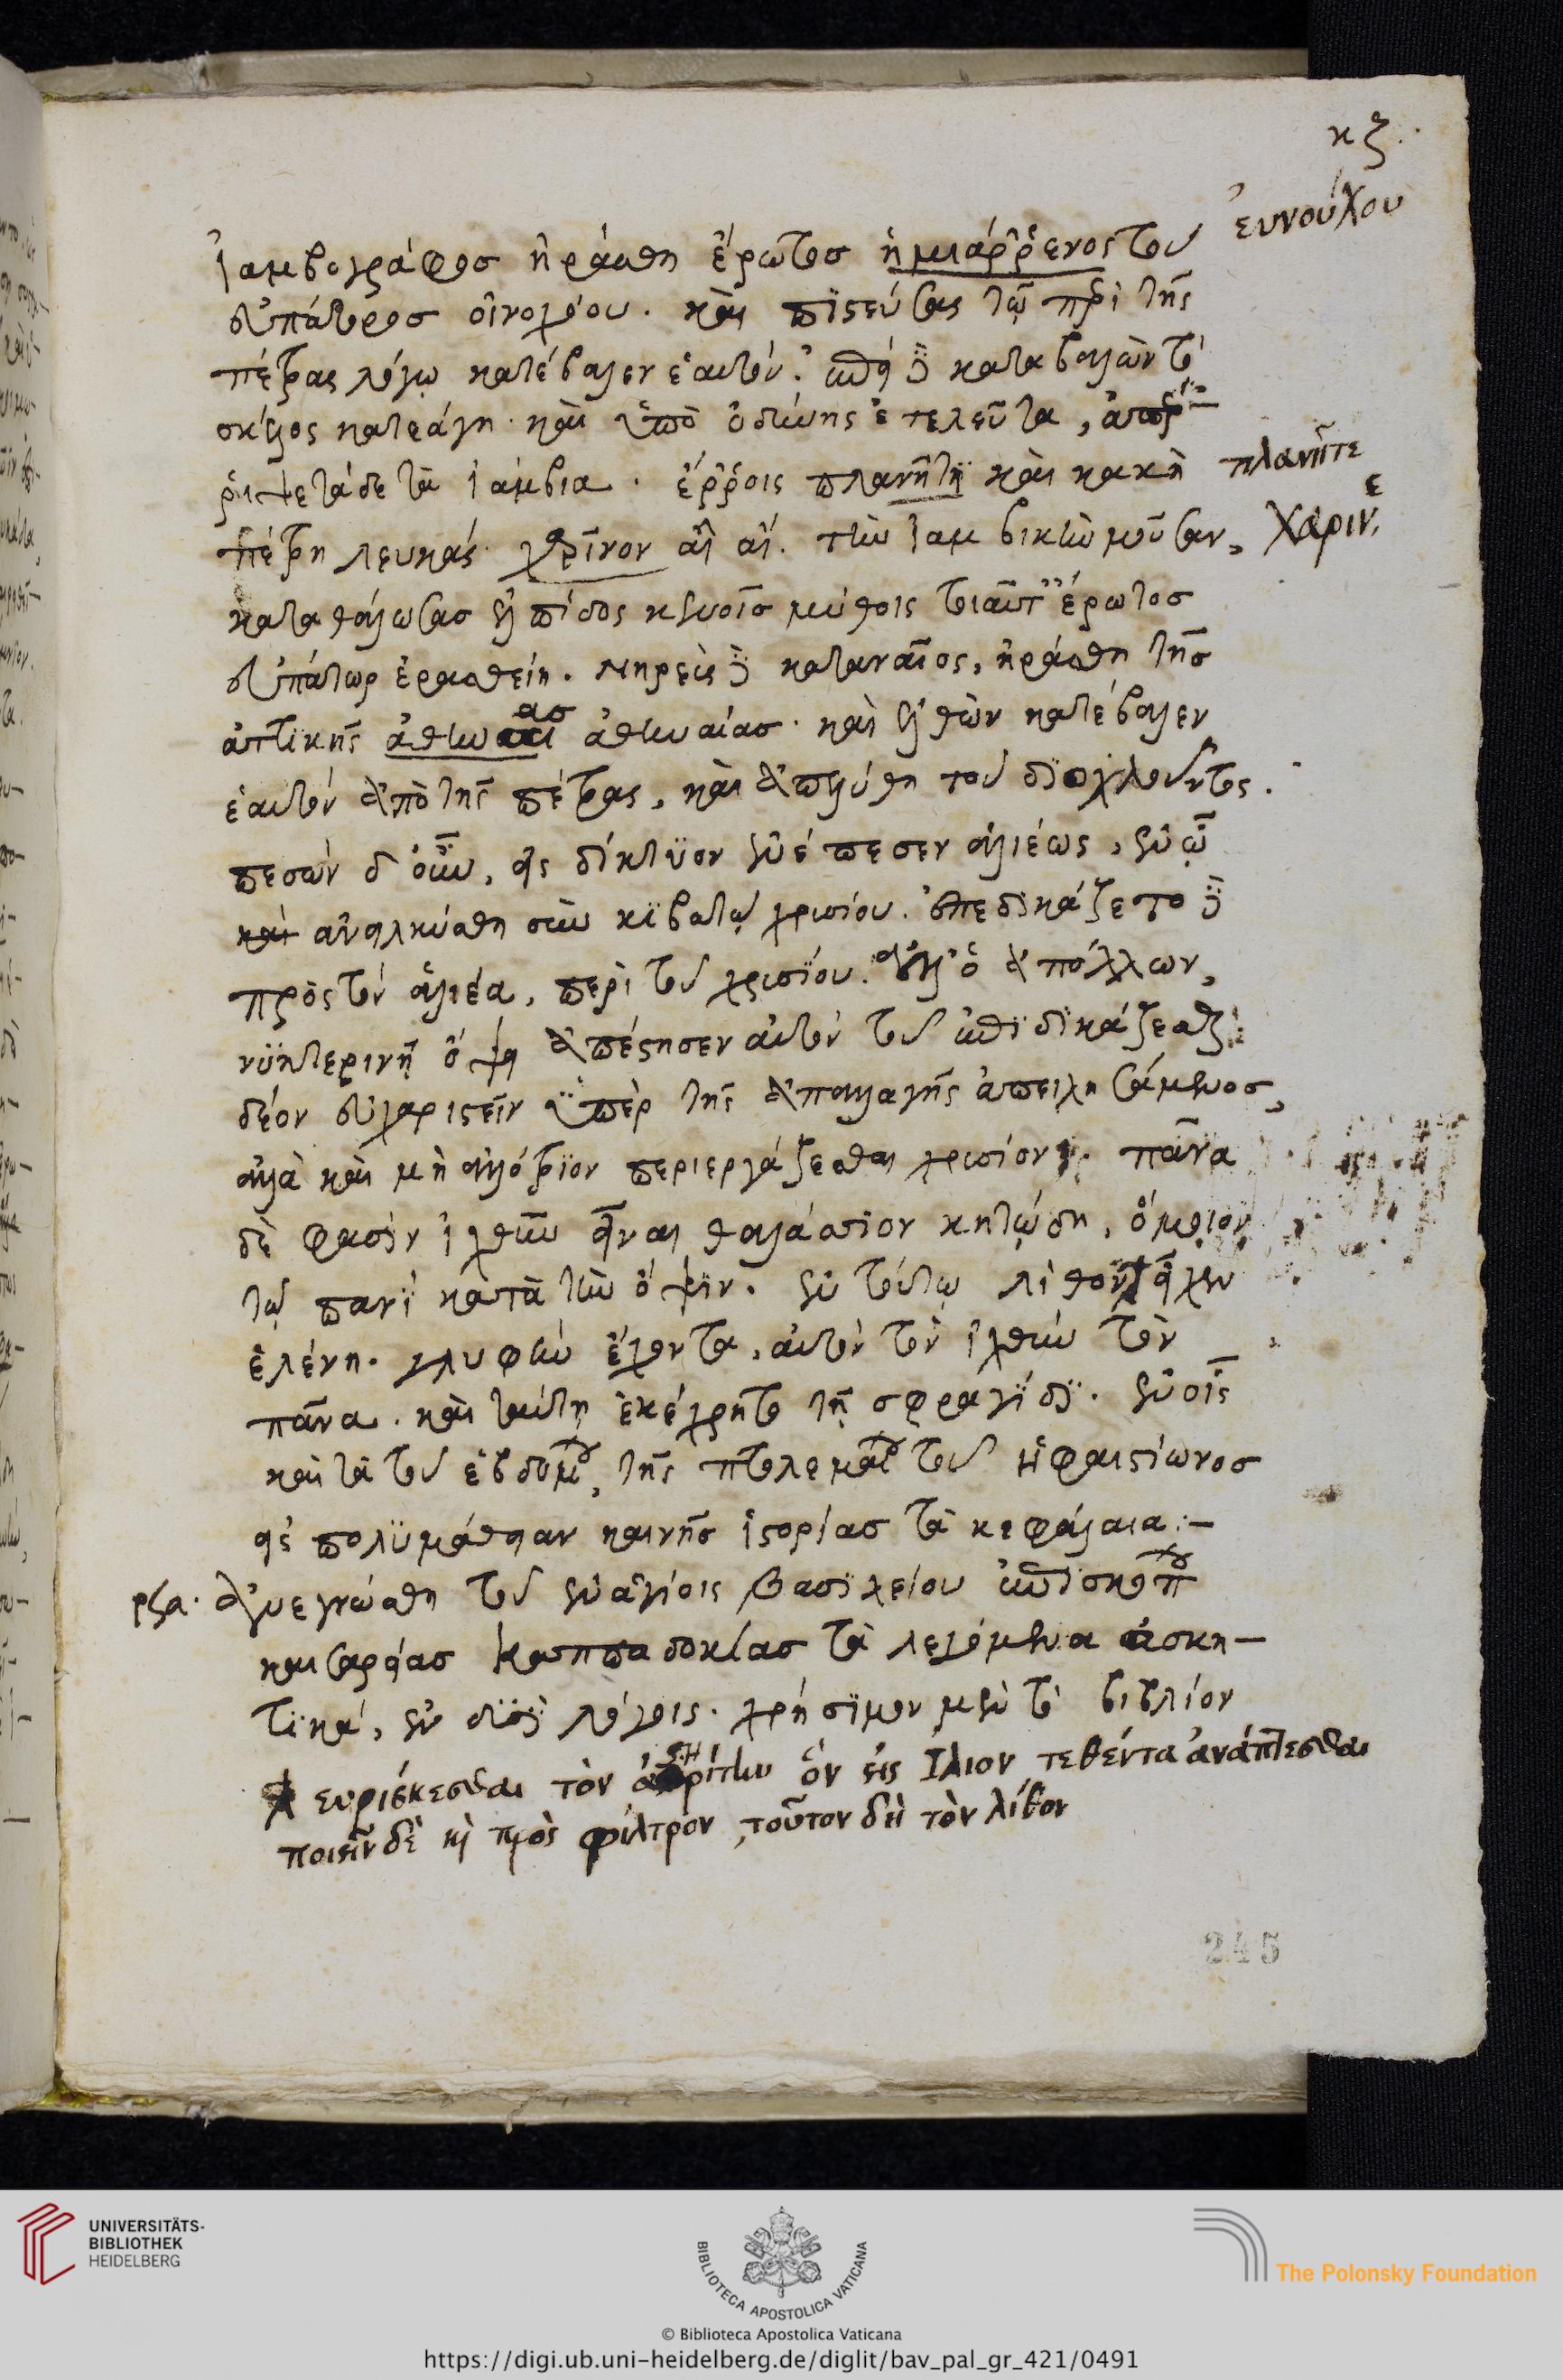 κζ.
ἰαμβογράφος ἠράσθη ἔρωτος ἡμιάῤῥενος τοῦ εὐνούχου
εὐπάτορος οἰνοχόου. καὶ πϊστεύσας τῶ περὶ τῆς
πέτρας λόγω κατέβαλεν ἑαυτόν. ἐπεὶ δὲ καταβαλὼν τὸ
σκέλος κατεάγη. καὶ ὑπὸ ὀδύνης ἐτελεύτα, ἀπέρ-
ῥιψε τάδε τὰ ἰάμβια. ἔῤῥοις πλανῆτη καὶ κακὴ πλανῆτε
πέτρη λευκάς. χαρῖνον αἲ αἴ. τὴν ἰαμβικὴν μοῦσαν, χαρινε.
κατεθάλωσας ἐλπίδος κενοῖς μύθοις τοιαῦτ' ἔρωτος
εὐπάτωρ ἐρασθείη. νηρεὺς δὲ καταναῖος, ἠράσθη τῆς
ἀττϊκῆς ἀθηνας ἀθηναίας. καὶ ἐλθὼν κατέβαλεν
ἑαυτὸν ἀπὸ τῆς πέτρας, καὶ ἀπελύθη τοῦ διοχλοῦντος.
πεσὼν δ' οὖν, εἰς δίκτϋον ἐνέπεσεν ἁλιέως, ἐν ᾧ
καὶ ἀνειλκύσθη σὺν κϊβωτῷ χρυσίου. ἐπεδικάζετο δὲ
πρὸς τὸν ἁλιέα, περὶ τοῦ χρυσϊου. ἀλλ' ὁ ἀπόλλων,
νϋκτερινῇ ὄψει ἀπέστησεν αὐτὸν τοῦ ἐπϊδικάζεσθαι
δέον εὐχαριστεῖν ὑπὲρ τῆς ἀπαλλαγῆς ἀπειλησάμενος,
ἀλλὰ καὶ μὴ ἀλλότρϊον περιεργάζεσθαι χρυσίον. πᾶνα
δέ φασϊν ἰχθὺν εἶναι θαλάσσιον κητώδη, ὅμοιον
τῷ πανῒ κατὰ τὴν ὄψϊν. ἐν τούτῳ λίθον εἶχεν
ἑλένη. γλυφὴν ἔχοντα, αὐτὸν τὸν ἰχθὺν τὸν
πᾶνα. καὶ ταύτη ἐκέχρητο τῇ σφραγῖδϊ. ἐν οἷς
καὶ τὰ τοῦ ἑβδόμου, τῆς πτολεμαίου τοῦ ἡφαιστίωνος
εἰς πολϋμάθειαν καινῆς ἱστορίας τὰ κεφάλαια:-
ρϟα. ἀνεγνώσθη τοῦ ἐν ἁγίοις βασϊλείου ἐπϊσκόπου
καισαρείας καππαδοκίας τὰ λεγόμενα ἀσκη-
τϊκά, ἐν δϋσὶ λόγοις. χρήσϊμον μὲν τὸ βιβλίον
εὑρίσκεσθαι τὸν ἀστρίτην ὃν εἰς Ἥλιον τεθέντα ἀνάπτεσθαι
ποιεῖν δὲ κỳ πρὸς φίλτρον, τοῦτον δὴ τὸν λίθον
245
UNIVERSITÄTS-
BIBLIOTHEK
HEIDELBERG
BIBLIOTECA APOSTOLICA VATICANA
The Polonsky Foundation
© Biblioteca Apostolica Vaticana
https://digi.ub.uni-heidelberg.de/diglit/bav_pal_gr_421/0491